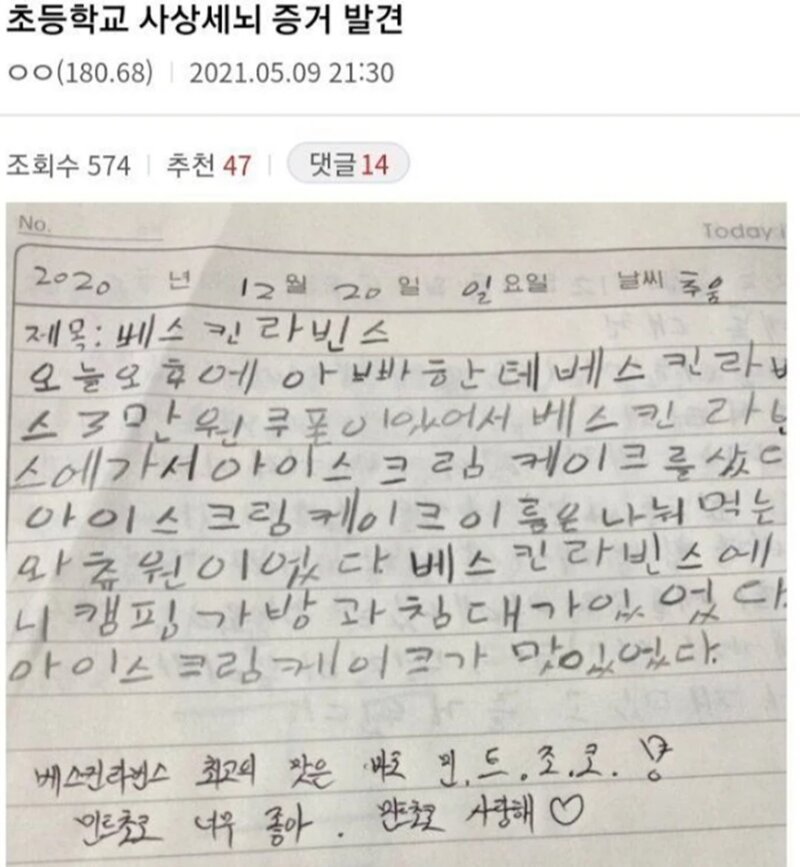 초등학교 사상세뇌 증거 발견
ㅇㅇ(180.68) | 2021.05.09 21:30
조회수 574 | 추천 47 | 댓글 14
No.
Today
2020 년 12 월 20 일 일 요일 날씨 추움
제목: 베스킨라빈스
오늘오후에 아빠한테베스킨라
스3만원쿠폰이있어서 베스킨라
스에가서아이스크림 케이크를샀
아이스크림케이크이름은 나눠먹는
와츄원이었다 베스킨라빈스에
니캠핑가방과침대가있었다.
아이스크림케이크가 맛있었다.
베스킨라빈스 최고의 맛은 바로 민.트.초.코.
민트초코 너무 좋아. 민트초코 사랑해♡